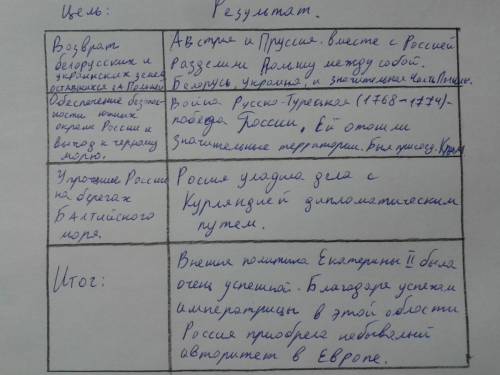 Цель: Результат.
Возврат
белорусских и
украинских земель
оставшихся за Польшей
Австрия и Пруссия вместе с Россией
разделили Польшу между собой.
Беларусь, Украина, и значительная часть Польши.
Обеспечение безопас-
ности южных
окраин России и
выход к Черному
морю.
Война Русско-Турецкая (1768-1774)-
победа России. Ей отошли
значительные территории. Был присоед. Крым
Упрочение России
на берегах
Балтийского
моря.
Россия уладила дела с
Курляндией дипломатическим
путем.
Итог:
Внешняя политика Екатерины II была
очень успешной. Благодаря успехам
императрицы в этой области
Россия приобрела небывалый
авторитет в Европе.